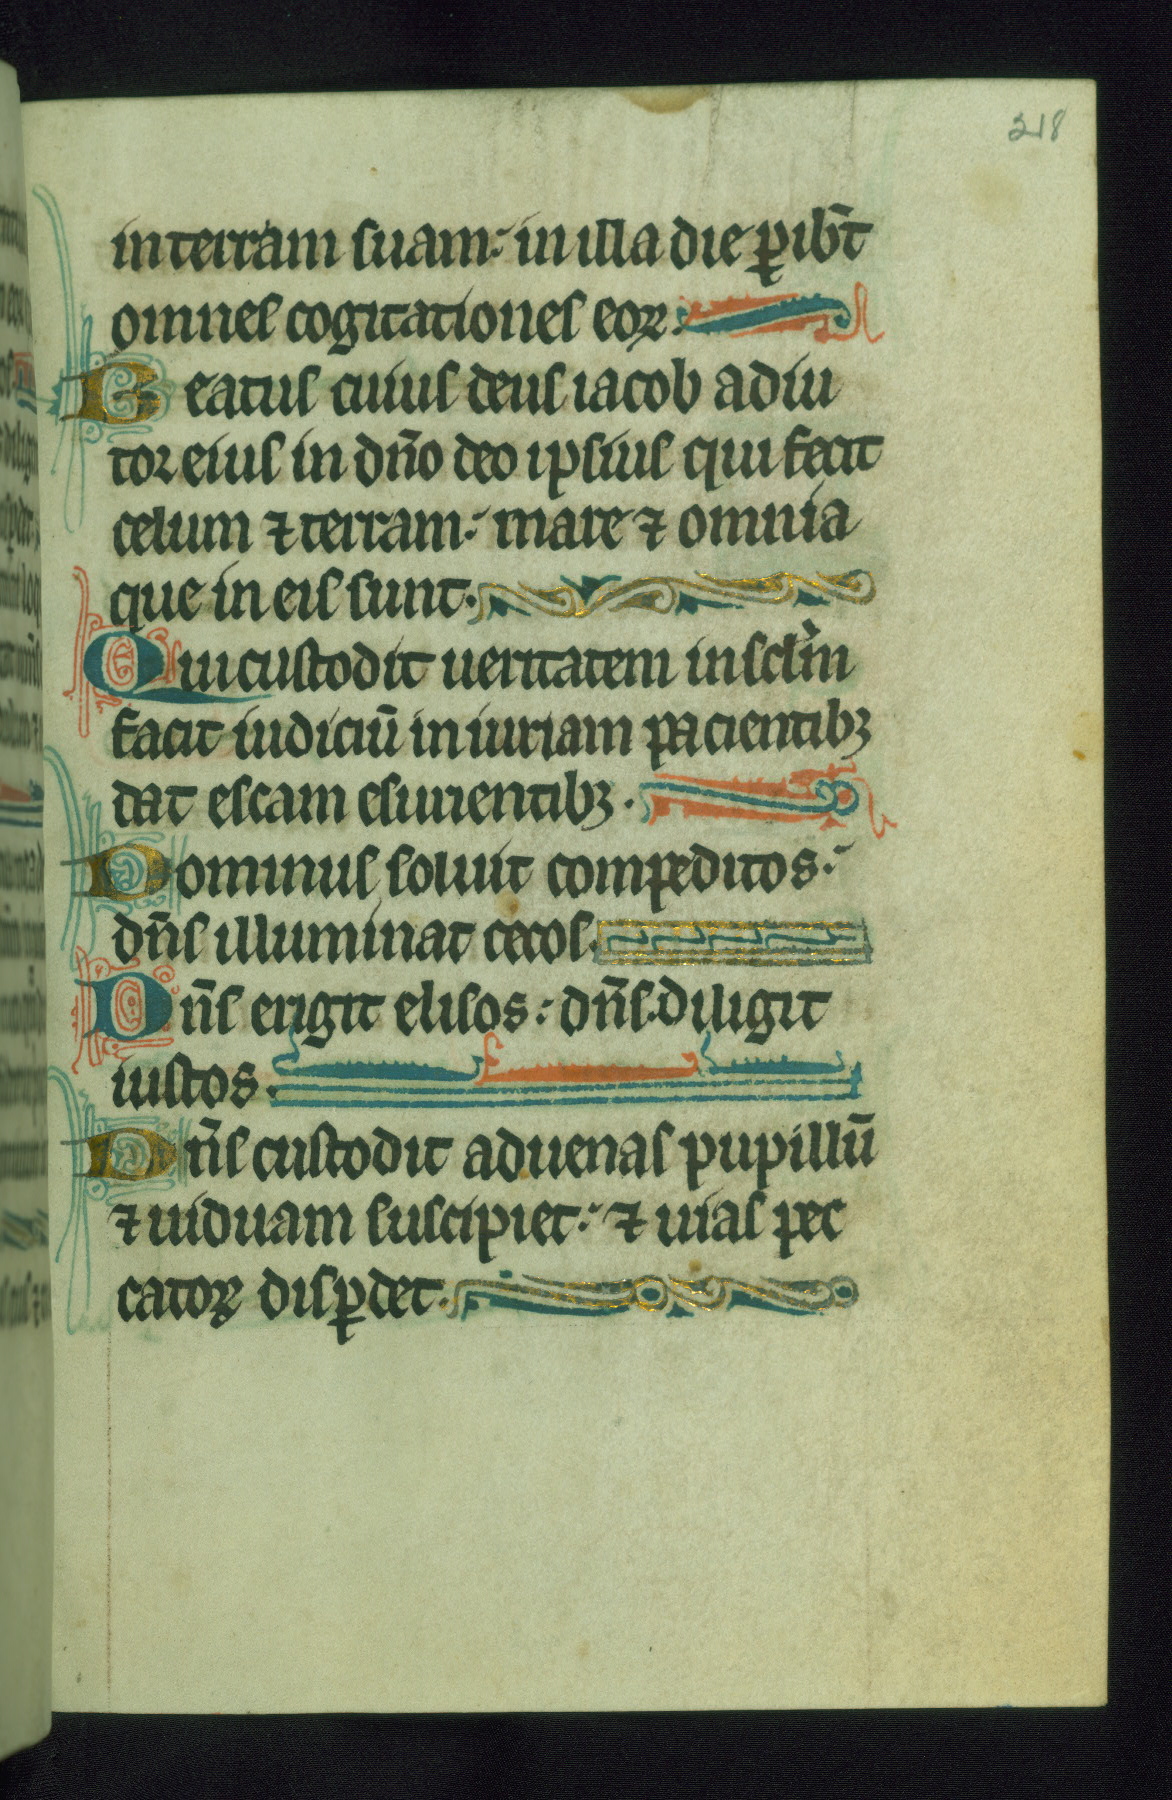 218
in terram suam: in illa die ꝑibt̄
omnes cogitationes eoꝝ.
Beatus cuius deus iacob adiu
tor eius in dn̄o deo ipsius qui fecit
celum ⁊ terram: mare ⁊ omnia
que in eis sunt.
Qui custodit ueritatem in sclm̄
facit iudiciū in iuriam pacientibꝫ
dat escam esurientibꝫ.
Dominus soluit compeditos:
dn̄s illuminat cecos.
Dn̄s erigit elisos: dn̄s diligit
iustos.
Dn̄s custodit aduenas pupillū
⁊ uiduam suscipiet: ⁊ uias pec
catoꝝ disꝑdet.